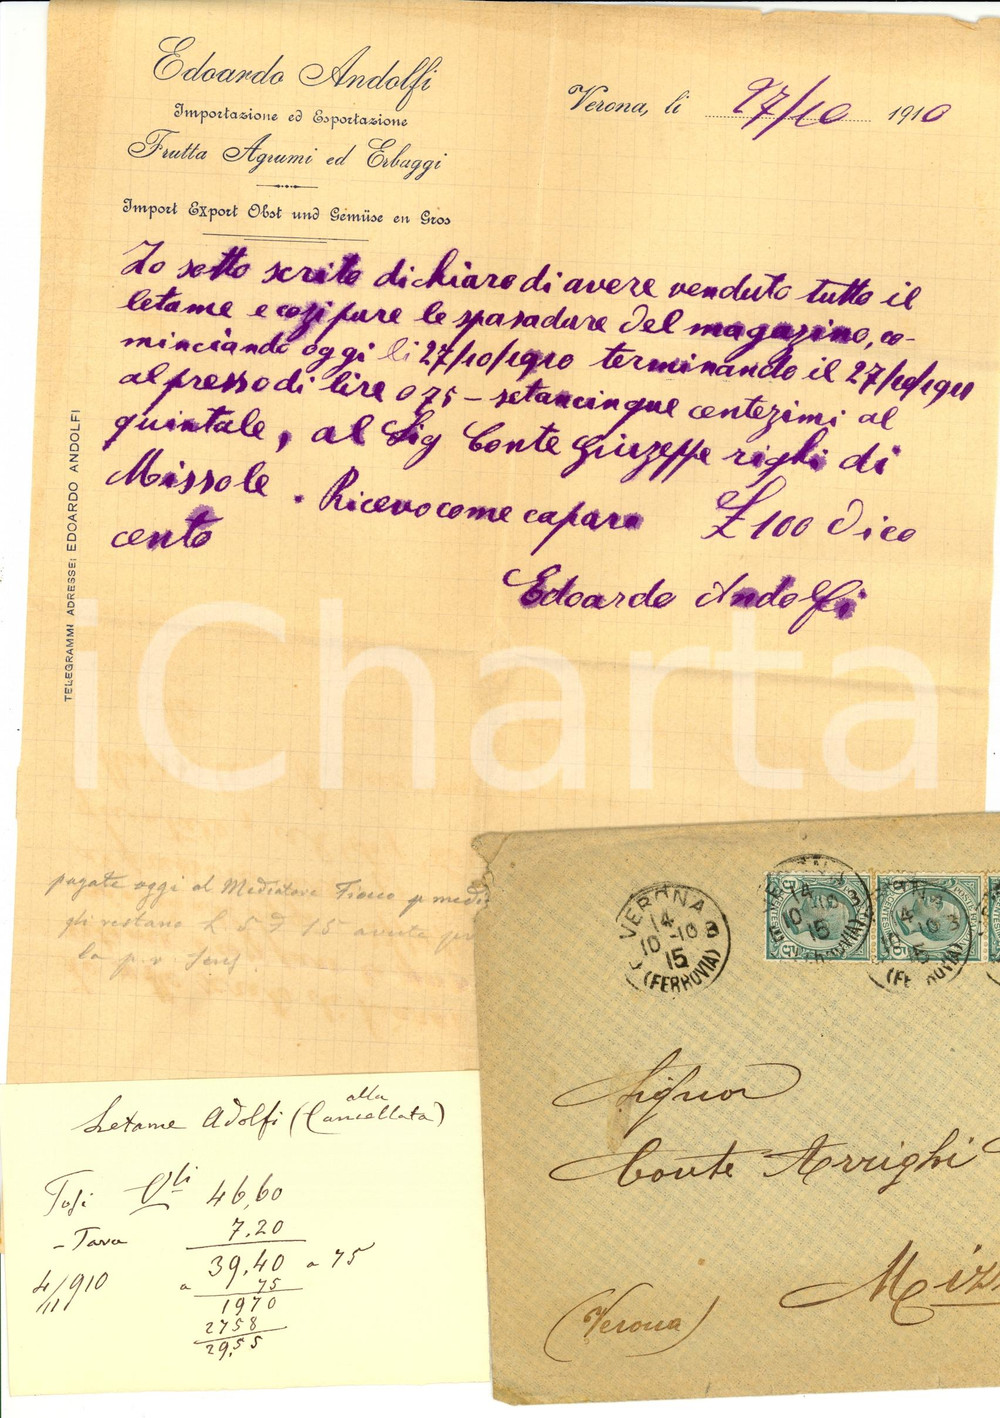 Edoardo Andolfi
Importazione ed Esportazione
Frutta Agrumi ed Erbaggi
Import Export Obst und Gemüse en Gros
Verona, li 27/10 1910
Io sotto scrito dichiaro di avere venduto tutto il
letame e cozi pure le spasadure del magazino, co-
minciando oggi li 27/10/1910 terminando il 27/10/1911
al presso di lire 0 75 - setancinque centezimi al
quintale, al Sig Conte Giuzeppe righi di
Missole. Ricevo come capara £ 100 dico
cento
Edoardo Andolfi
TELEGRAMMI ADRESSE: EDOARDO ANDOLFI
iCharta
pagate oggi al Mediatore
gli restano L. 5
Letame Adolfi (alla Cancellata)
46,60
- Tara 7.20
39,40 a 75
4/11/910
a 75
1970
2758
29,55
VERONA 3
14
10-10
15
(FERROVIA)
VERONA 3
14
10-10
15
(FERROVIA)
14
10-10
15
Signor
Conte Arrighi
Miz
(Verona)